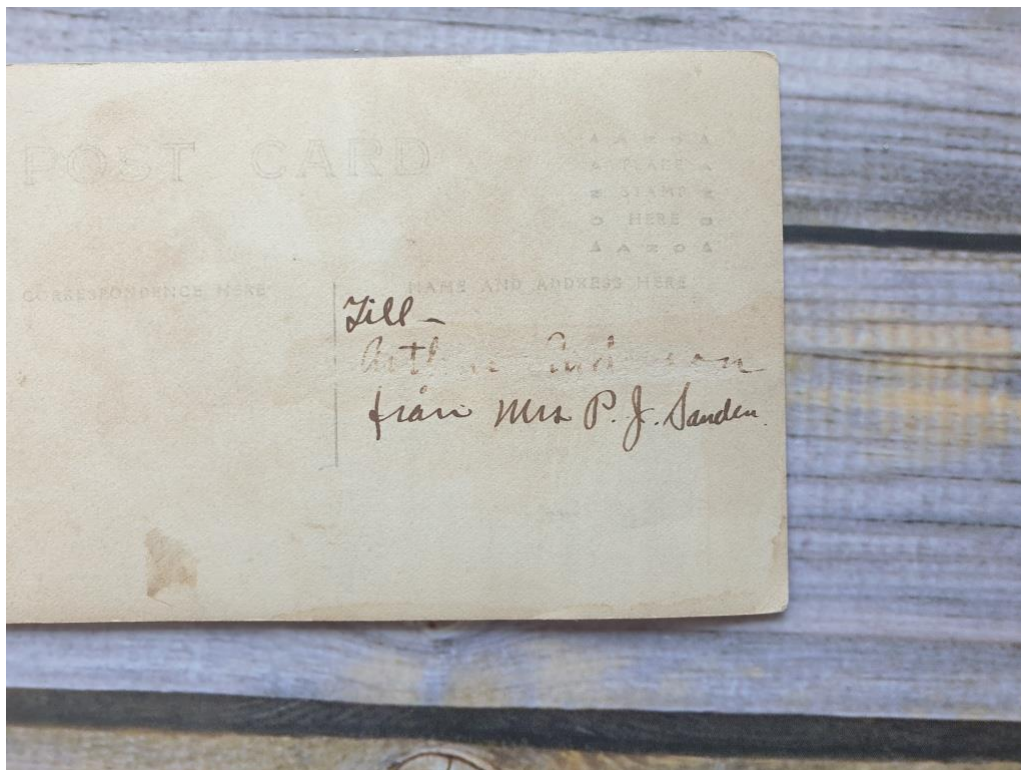 POST CARD
AZO
PLACE
STAMP
HERE
AZO
CORRESPONDENCE HERE
NAME AND ADDRESS HERE
Till –
från Mrs P. J. Sanden.